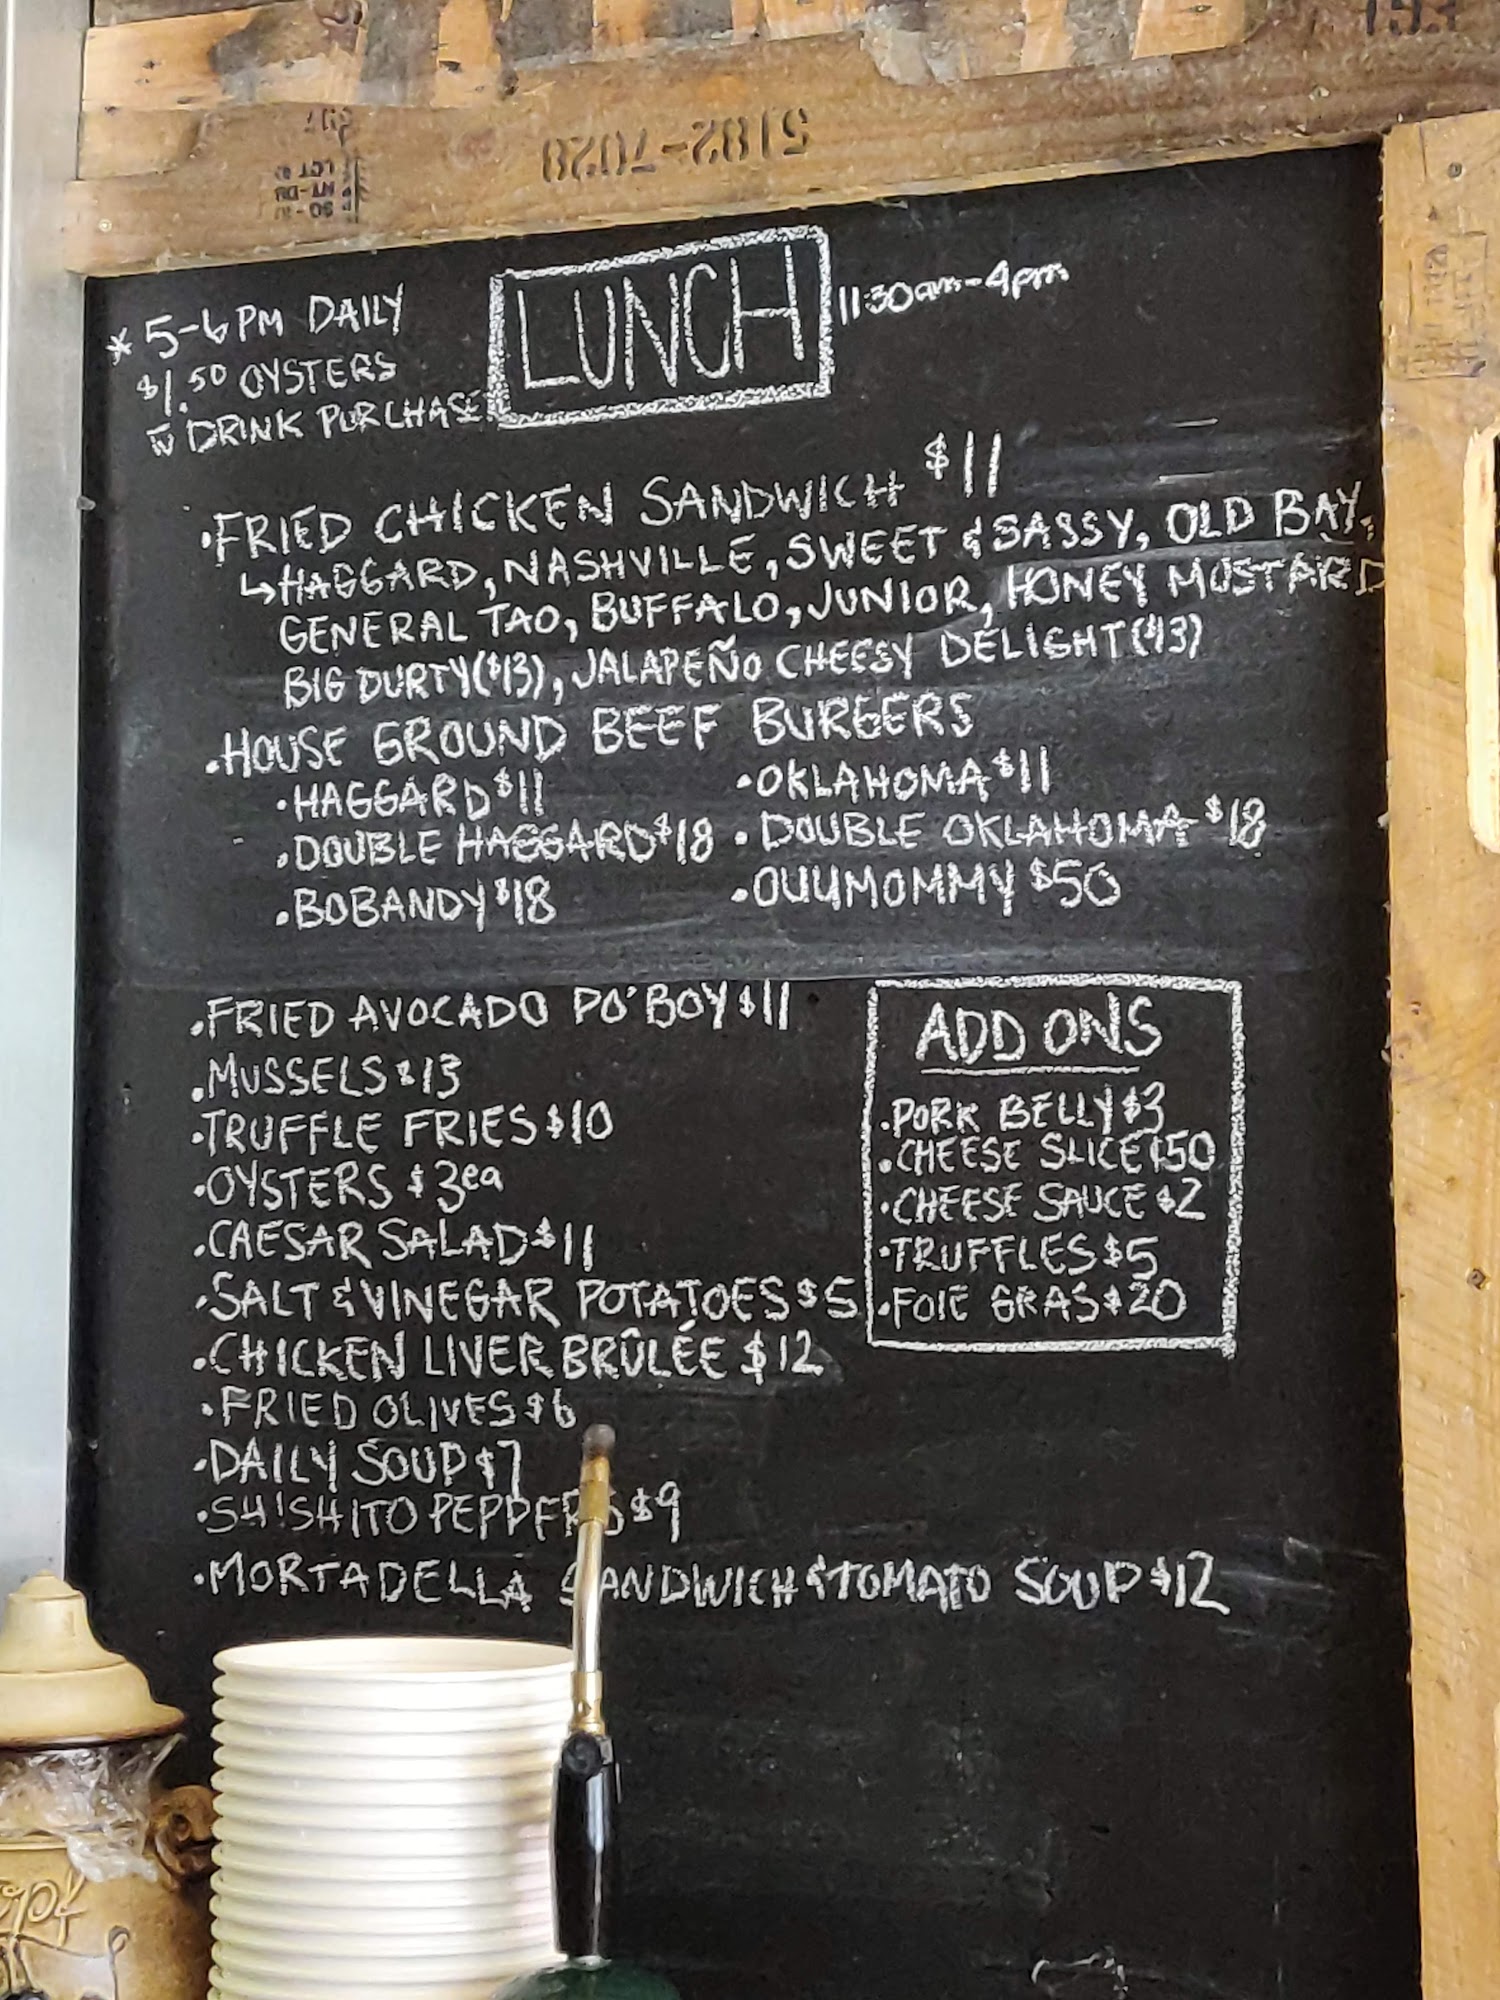 5182-7028
LUNCH
11:30am-4pm
* 5-6 PM DAILY
$1.50 OYSTERS
w DRINK PURCHASE
•FRIED CHICKEN SANDWICH $11
↳HAGGARD, NASHVILLE, SWEET & SASSY, OLD BAY,
GENERAL TAO, BUFFALO, JUNIOR, HONEY MUSTARD
BIG DURTY($13), JALAPEÑO CHEESY DELIGHT($13)
•HOUSE GROUND BEEF BURGERS
•HAGGARD $11
•OKLAHOMA $11
•DOUBLE HAGGARD $18
•DOUBLE OKLAHOMA $18
•BOBANDY $18
•OUUMOMMY $50
•FRIED AVOCADO PO'BOY $11
•MUSSELS $13
•TRUFFLE FRIES $10
•OYSTERS $3ea
•CAESAR SALAD $11
•SALT & VINEGAR POTATOES $5
•CHICKEN LIVER BRÛLÉE $12
•FRIED OLIVES $6
•DAILY SOUP $7
•SHISHITO PEPPERS $9
•MORTADELLA SANDWICH & TOMATO SOUP $12
ADD ONS
•PORK BELLY $3
•CHEESE SLICE $.50
•CHEESE SAUCE $2
•TRUFFLES $5
•FOIE GRAS $20